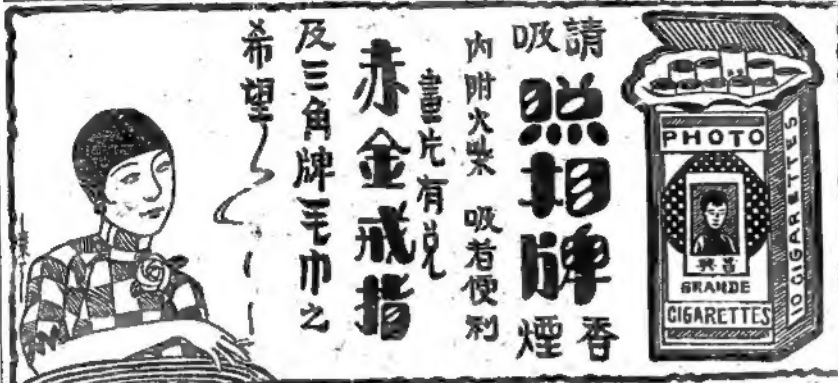 請吸
照相牌
香煙
內附火柴 吸着便利
畫片有兌
赤金戒指
及三角牌毛巾之
希望
PHOTO
昌興
GRANDE
CIGARETTES
10 CIGARETTES